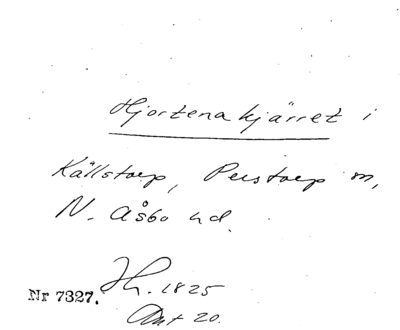 Hjortenakjärret i
Källstorp, Perstorp m,
N. Åsbo hd.
Jh. 1825
Nr 7327.
Akt 20.